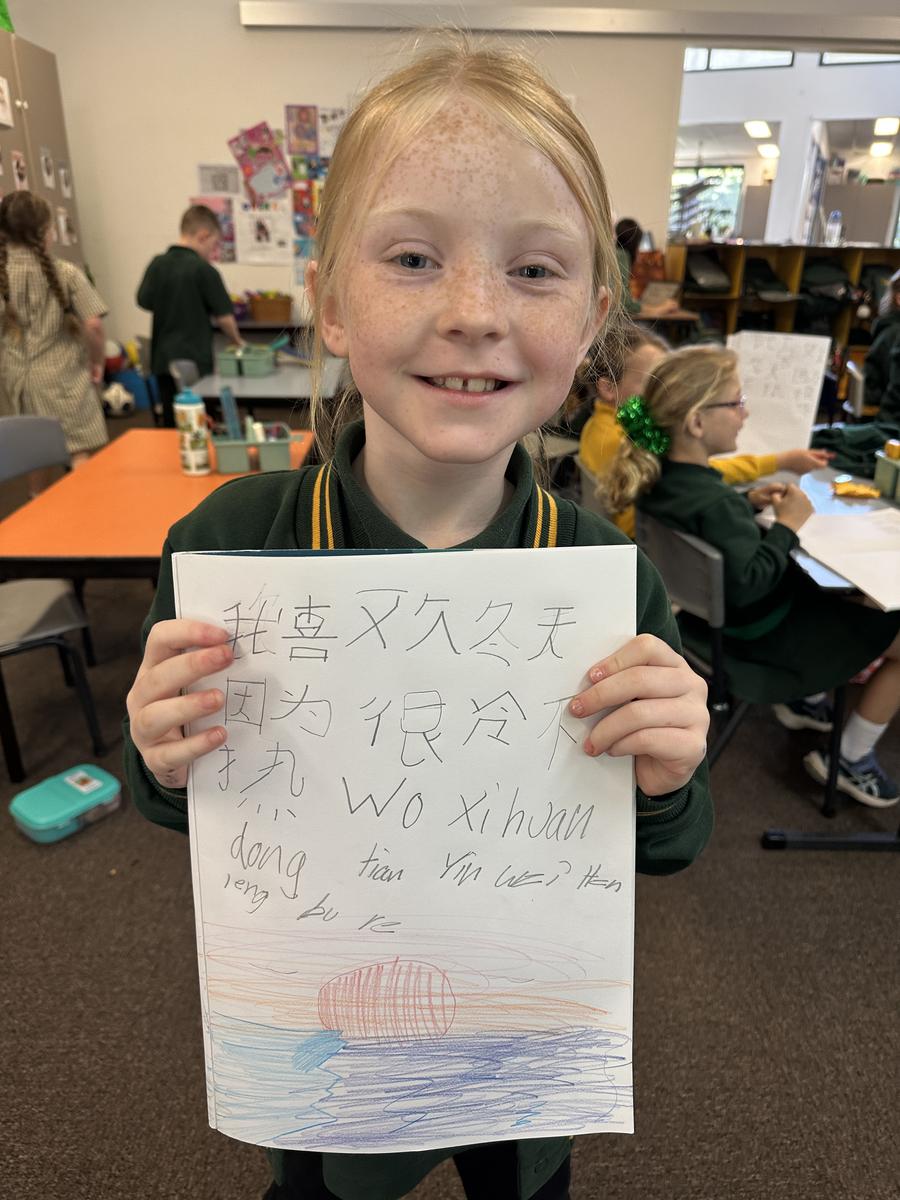 我喜又欠冬天
因为很冷不
热 Wo xihuan
dong tian Yin wei Hen
leng bu re